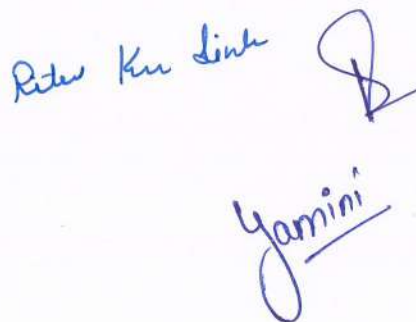 Ritu Ku Sinh
Yamini